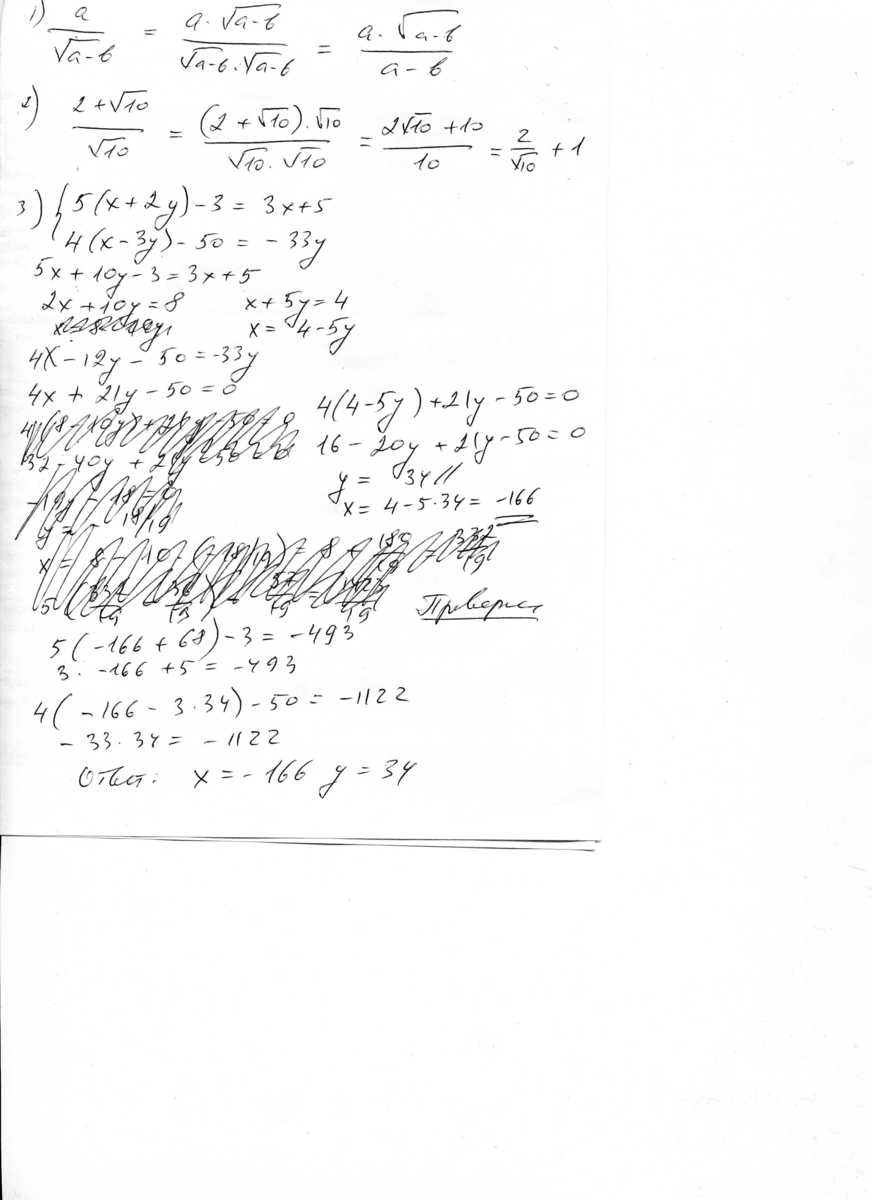 1) a/√a-b = a·√a-b/√a-b·√a-b = a·√a-b/a-b
2) 2+√10/√10 = (2+√10)·√10/√10·√10 = 2√10+10/10 = 2/√10 + 1
3) { 5(x+2y)-3 = 3x+5
4(x-3y)-50 = -33y
5x+10y-3=3x+5
2x+10y=8 x+5y=4
x= 4-5y
4x-12y-50=-33y
4x+21y-50=0
4(4-5y)+21y-50=0
16-20y+21y-50=0
y= 34//
x=4-5·34= -166
Проверка
5(-166+68)-3= -493
3·-166+5= -493
4(-166-3·34)-50= -1122
-33·34= -1122
Ответ: x=-166 y=34